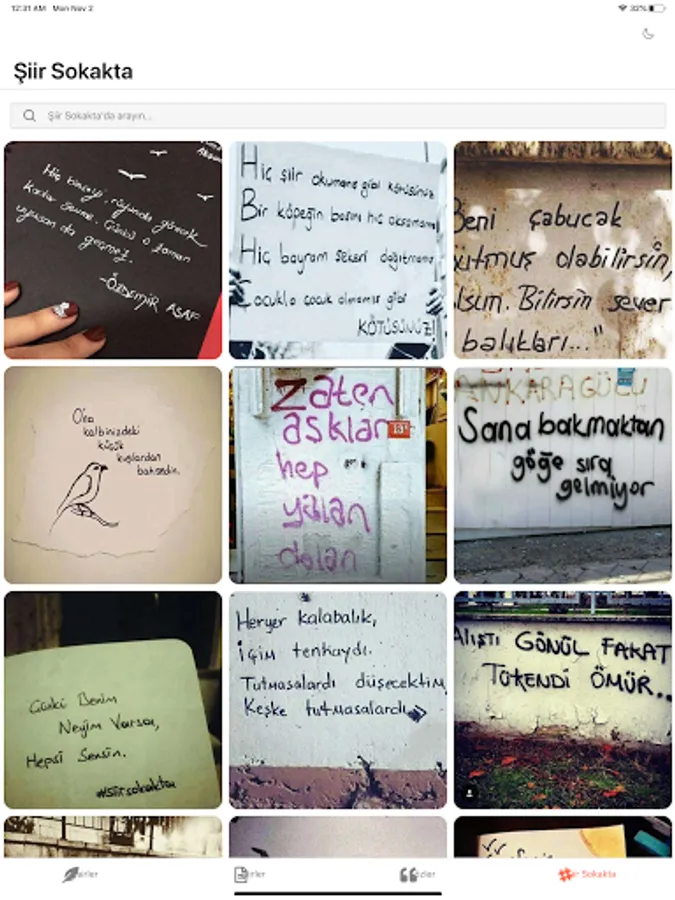 12:31 AM Mon Nov 2
32%
Şiir Sokakta
Şiir Sokakta'da arayın...
Hiç kimseyi, rüyanda görecek
kadar sevme. Çünkü o zaman
uyusan da geçmez.
-ÖZDEMİR ASAF
Hiç şiir okumamış gibi kötüsünüz
Bir köpeğin başını hiç okşamamış
Hiç bayram şekeri dağıtmamış
Çocukla çocuk olmamış gibi
KÖTÜSÜNÜZ!
Beni çabucak
unutmuş olabilirsin,
olsun. Bilirsin sever
balıkları..."
Ona
kalbinizdeki
küçük
kuşlardan
bahsedin.
Zaten
aşklar
hep
yalan
dolan
ANKARAGÜCÜ
Sana bakmaktan
göğe sıra
gelmiyor
Çünkü Benim
Neyim Varsa,
Hepsi Sensin.
#siirsokakta
Heryer kalabalık,
içim tenhaydı.
Tutmasalardı düşecektim
Keşke tutmasalardı
ALIŞTI GÖNÜL FAKAT
TÜKENDİ ÖMÜR..
Şiir Sokakta